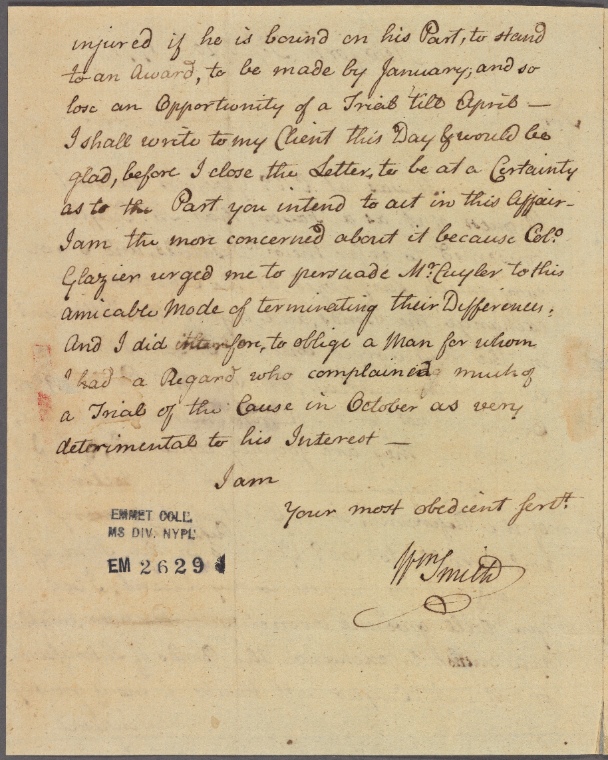 injured if he is bound on his Part, to stand
to an Award, to be made by January, and so
lose an Opportunity of a Trial till April —
I shall write to my Client this Day & would be
glad, before I close the Letter, to be at a Certainty
as to the Part you intend to act in this Affair—
I am the more concerned about it because Col.o
Glazier urged me to persuade Mr. Cuyler to this
amicable Mode of terminating their Differences,
And I did interfere, to oblige a Man for whom
I had a Regard who complained much of
a Trial of the Cause in October as very
deterimental to his Interest —
I am
Your most obedient servt.
Wm Smith
EMMET COLL.
MS DIV. NYPL
EM 2629